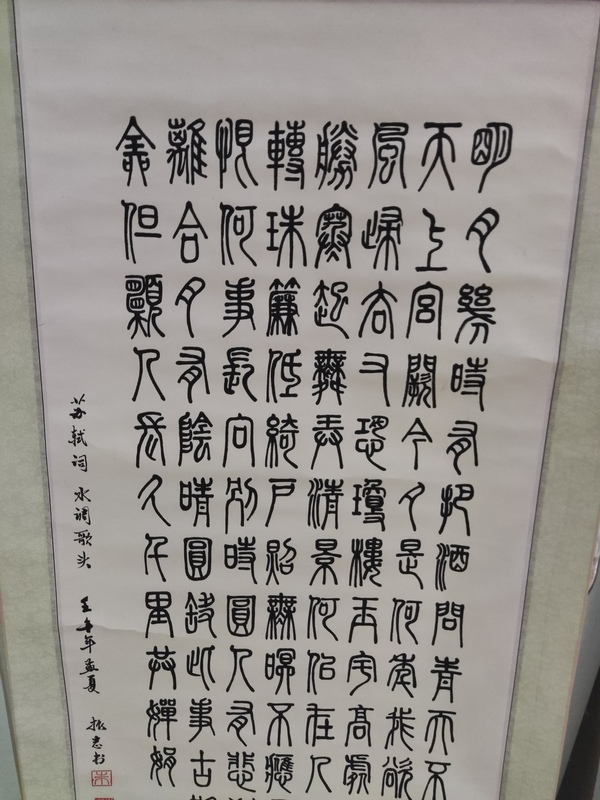 明月幾時有把酒問青天不
天上宮闕今夕是何年我欲
風歸去又恐瓊樓玉宇高處
勝寒起舞弄清景何似在人
轉珠簾低綺戶照無眠不應
恨何事長向別時圓人有悲
離合月有陰晴圓缺此事古
全但願人長久千里共嬋娟
苏轼词 水调歌头 年孟夏 书